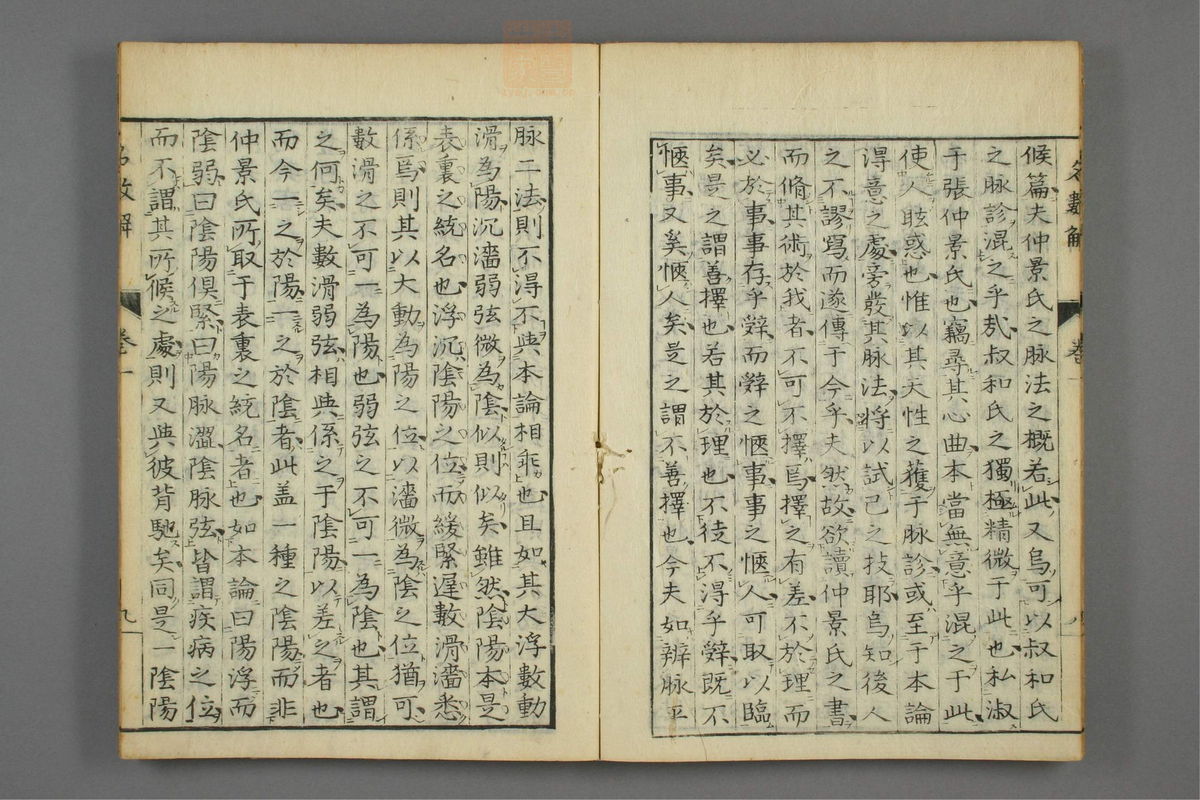 候篇夫仲景氏之脉法之概若此又烏可以叔和氏
之脉診混之乎哉叔和氏之獨極精微于此也私淑
于張仲景氏也竊尋其心曲本當無意乎混之于此
使人眩惑也惟以其天性之獲于脉診或至于本論
得意之處旁發其脉法將以試己之技耶烏知後人
之不謬寫而遂傳于今乎夫然故欲讀仲景氏之書
而脩其術於我者不可不擇焉擇之有差不於理而
必於事事存乎辭而辭之愜事事之愜人可取以臨
矣是之謂善擇也若其於理也不徒不得乎辭既不
愜事又奚愜人矣是之謂不善擇也今夫如辨脉平
名數解
卷一
八
脉二法則不得不與本論相乖也且如其大浮數動
滑為陽沉濇弱弦微為陰似則似矣雖然陰陽本是
表裏之統名也浮沉陰陽之位而緩緊遲數滑濇悉
係焉則其以大動為陽之位以濇微為陰之位猶可
數滑之不可一為陽也弱弦之不可一為陰也其謂
之何矣夫數滑弱弦相與係之于陰陽以差之者也
而今一之於陽一之於陰者此盖一種之陰陽而非
仲景氏所取于表裏之統名者也如本論曰陽浮而
陰弱曰陰陽俱緊曰陽脉濇陰脉弦皆謂疾病之位
而不謂其所候之處則又與彼背馳矣同是一陰陽
名數解
卷一
九